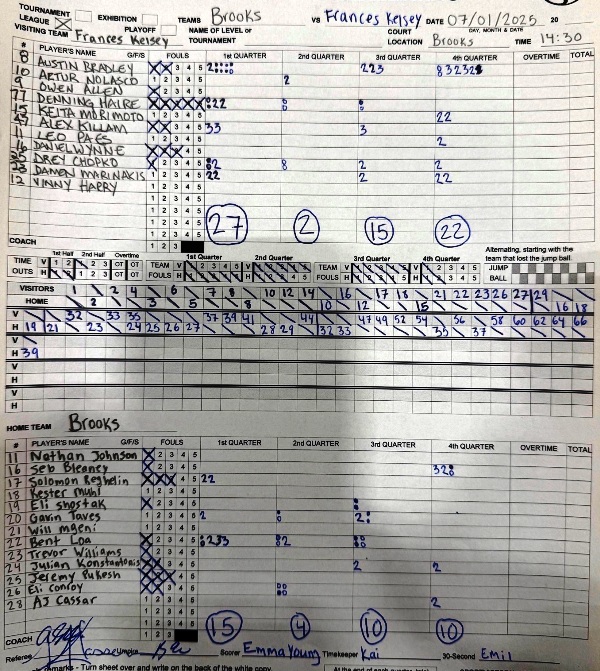 TOURNAMENT
LEAGUE EXHIBITION TEAMS Brooks VS Frances Kelsey DATE 07/01/2025 20
PLAYOFF NAME OF LEVEL or TOURNAMENT COURT LOCATION Brooks DAY, MONTH & DATE TIME 14:30
VISITING TEAM Frances Kelsey
# PLAYER'S NAME G/F/S FOULS 1st QUARTER 2nd QUARTER 3rd QUARTER 4th QUARTER OVERTIME TOTAL
8 AUSTIN BRADLEY 1 2 3 4 5 2 223
10 ARTUR NOLASCO 1 2 3 4 5 2
9 OWEN ALLEN 1 2 3 4 5
77 DENNING HAIRE 1 2 3 4 5 22
15 KEITA MORIMOTO 1 2 3 4 5 22
ALEX KILLAM 1 2 3 4 5 33 3
11 LEO PAES 1 2 3 4 5 2
16 DANIEL WYNNE 1 2 3 4 5
DREY CHOPKO 1 2 3 4 5 2 8 2 2
23 DAMEN MARINAKIS 1 2 3 4 5 22 2 22
12 VINNY HARRY 1 2 3 4 5
1 2 3 4 5
1 2 3 4 5
COACH 1 2 3 27 2 15 22
Alternating, starting with the team that lost the jump ball.
1st Half 2nd Half Overtime 1st Quarter 2nd Quarter 3rd Quarter 4th Quarter
TIME OUTS V H TEAM FOULS V H TEAM FOULS V H JUMP BALL
VISITORS 1 2 4 6 7 8 10 12 14 16 17 18 21 22 23 26 27 29
HOME 2 3 5 8 10 12 15 16 18
V 32 33 35 37 39 41 44 47 49 52 54 56 58 60 62 64 66
H 19 21 23 24 25 26 27 28 29 32 33 35 37
V
H 39
V
H
V
H
HOME TEAM Brooks
# PLAYER'S NAME G/F/S FOULS 1st QUARTER 2nd QUARTER 3rd QUARTER 4th QUARTER OVERTIME TOTAL
11 Nathan Johnson 1 2 3 4 5
16 Seb Bleaney 1 2 3 4 5 32
17 Solomon Reghelin 1 2 3 4 5 22
18 Kester Muhl 1 2 3 4 5
19 Eli Shostak 1 2 3 4 5
20 Gavin Taves 1 2 3 4 5 2 2
21 Will mgeni 1 2 3 4 5
22 Bent Loa 1 2 3 4 5 233 2
23 Trevor Williams 1 2 3 4 5
24 Julian Konstantonis 1 2 3 4 5 2 2
25 Jeremy Pukesh 1 2 3 4 5
26 Eli Conroy 1 2 3 4 5
28 AJ Cassar 1 2 3 4 5 2
1 2 3 4 5
COACH 1 2 3 15 4 10 10
Referee Umpire Scorer Emma Young Timekeeper Kai 30-Second Emil
Remarks - Turn sheet over and write on the back of the white copy